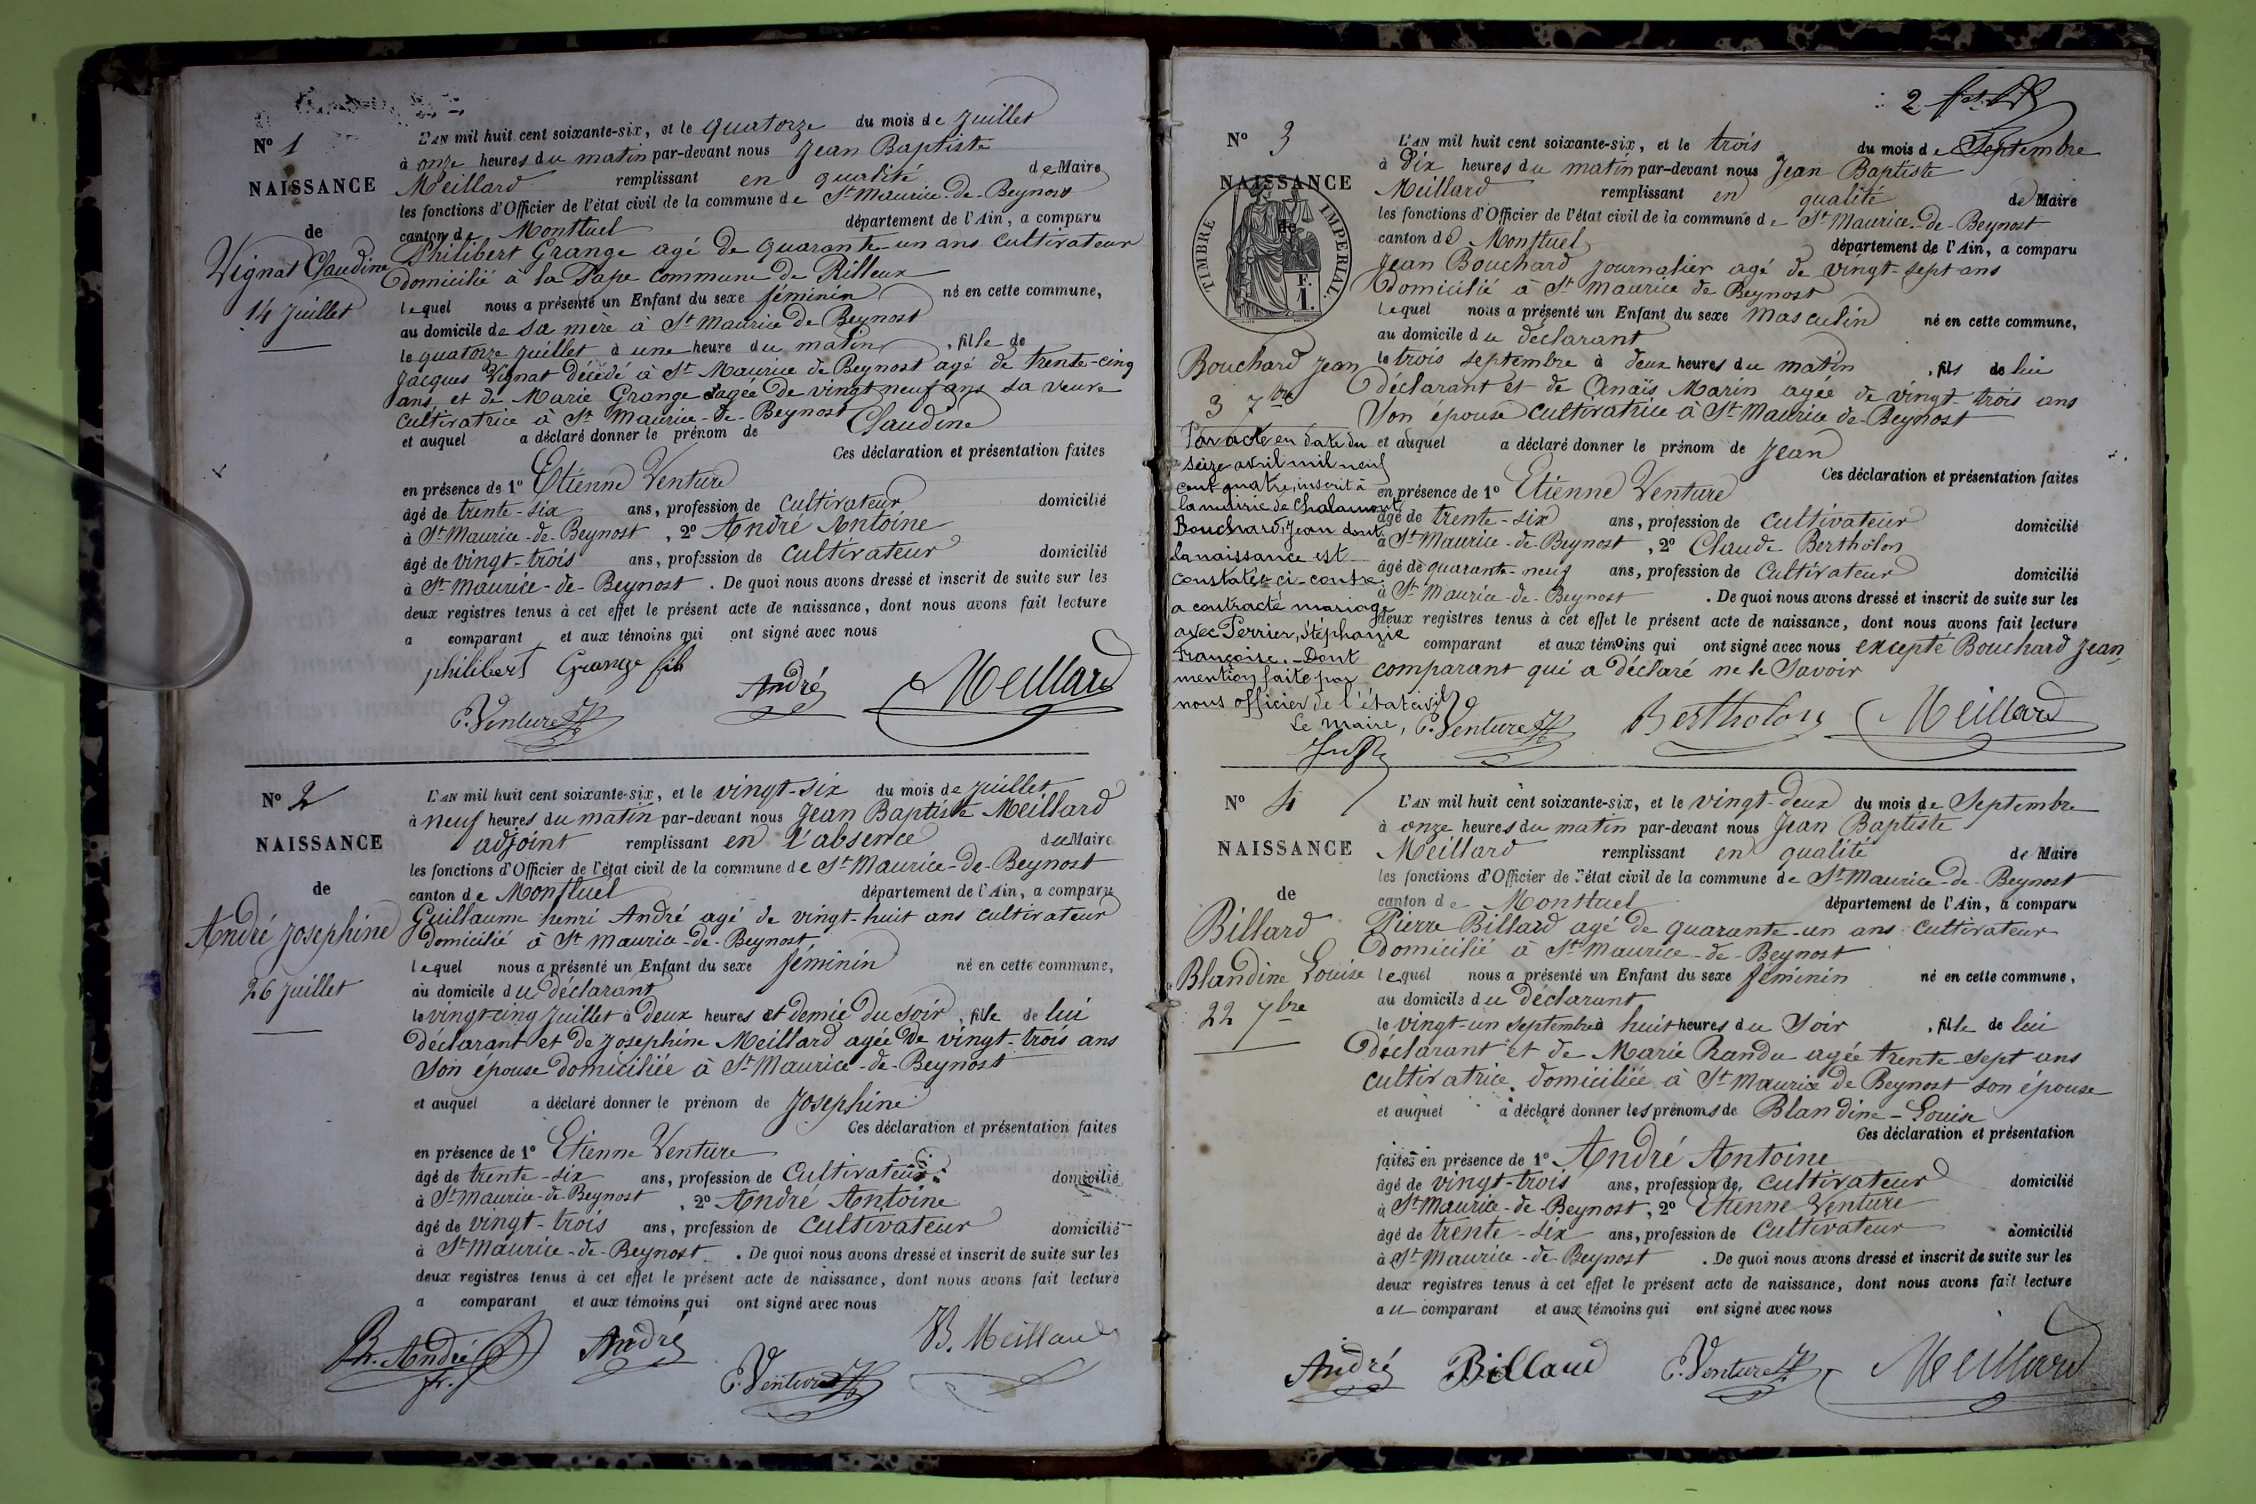 N° 1
NAISSANCE
de
Vignat Claudine
14 Juillet
L'AN mil huit cent soixante-six, et le quatorze du mois de Juillet
à onze heures du matin par-devant nous Jean Baptiste
Meillard remplissant en qualité de Maire
les fonctions d'Officier de l'état civil de la commune de St Maurice-de-Beynost
canton de Montluel département de l'Ain, a comparu
Philibert Grange agé de quarante-un ans cultivateur
Domicilié à la Pape commune de Rilleux
lequel nous a présenté un Enfant du sexe féminin né en cette commune,
au domicile de sa mère à St Maurice de Beynost
le quatorze juillet à une heure du matin, fille de
Jacques Vignat décédé à St Maurice de Beynost agé de trente-cinq
ans et de Marie Grange agée de vingt neuf ans sa veuve
cultivatrice à St Maurice-de-Beynost
et auquel a déclaré donner le prénom de Claudine
Ces déclaration et présentation faites
en présence de 1° Etienne Venture
âgé de trente-six ans, profession de cultivateur domicilié
à St Maurice-de-Beynost, 2° André Antoine
âgé de vingt-trois ans, profession de cultivateur domicilié
à St Maurice-de-Beynost. De quoi nous avons dressé et inscrit de suite sur les
deux registres tenus à cet effet le présent acte de naissance, dont nous avons fait lecture
a comparant et aux témoins qui ont signé avec nous
philibert Grange fils André Meillard
E. Venture
N° 2
NAISSANCE
de
André Josephine
26 Juillet
L'AN mil huit cent soixante-six, et le vingt-six du mois de Juillet
à neuf heures du matin par-devant nous Jean Baptiste Meillard
adjoint remplissant en l'absence du Maire
les fonctions d'Officier de l'état civil de la commune de St Maurice-de-Beynost
canton de Montluel département de l'Ain, a comparu
Guillaume henri André agé de vingt-huit ans cultivateur
Domicilié à St Maurice-de-Beynost
lequel nous a présenté un Enfant du sexe féminin né en cette commune,
au domicile du déclarant
le vingt cinq Juillet à deux heures et demie du soir, fille de lui
déclarant et de Josephine Meillard agée de vingt-trois ans
son épouse domiciliée à St Maurice-de-Beynost
et auquel a déclaré donner le prénom de Josephine
Ces déclaration et présentation faites
en présence de 1° Etienne Venture
âgé de trente-six ans, profession de cultivateur domicilié
à St Maurice-de-Beynost, 2° André Antoine
âgé de vingt-trois ans, profession de cultivateur domicilié
à St Maurice-de-Beynost. De quoi nous avons dressé et inscrit de suite sur les
deux registres tenus à cet effet le présent acte de naissance, dont nous avons fait lecture
a comparant et aux témoins qui ont signé avec nous
André André B. Meillard
E. Venture
2
N° 3
NAISSANCE
de
TIMBRE IMPERIAL.
1 F.
Bouchard Jean
3 7bre
Par acte en date du
seize avril mil neuf
cent quatre, inscrit à
la mairie de Chalamont
Bouchard, Jean dont
la naissance est
constatée ci-contre
a contracté mariage
avec Perrier, Stéphanie
Françoise. - Dont
mention faite par
nous officier de l'état civil
Le maire,
L'AN mil huit cent soixante-six, et le trois du mois de Septembre
à Dix heures du matin par-devant nous Jean Baptiste
Meillard remplissant en qualité de Maire
les fonctions d'Officier de l'état civil de la commune de St Maurice-de-Beynost
canton de Montluel département de l'Ain, a comparu
Jean Bouchard journalier agé de vingt-sept ans
Domicilié à St Maurice de Beynost
lequel nous a présenté un Enfant du sexe masculin né en cette commune,
au domicile du déclarant
le trois septembre à deux heures du matin, fils de lui
déclarant et de Anaïs Marin agée de vingt-trois ans
son épouse cultivatrice à St Maurice de-Beynost
et auquel a déclaré donner le prénom de Jean
Ces déclaration et présentation faites
en présence de 1° Etienne Venture
âgé de trente-six ans, profession de cultivateur domicilié
à St Maurice-de-Beynost, 2° Claude Bertholon
âgé de quarante-neuf ans, profession de cultivateur domicilié
à St Maurice-de-Beynost. De quoi nous avons dressé et inscrit de suite sur les
deux registres tenus à cet effet le présent acte de naissance, dont nous avons fait lecture
a comparant et aux témoins qui ont signé avec nous excepté Bouchard Jean,
comparant qui a déclaré ne le savoir
E. Venture Bertholon Meillard
N° 4
NAISSANCE
de
Billard
Blandine Louise
22 7bre
L'AN mil huit cent soixante-six, et le vingt-deux du mois de Septembre
à onze heures du matin par-devant nous Jean Baptiste
Meillard remplissant en qualité de Maire
les fonctions d'Officier de l'état civil de la commune de St Maurice-de-Beynost
canton de Montluel département de l'Ain, a comparu
Pierre Billard agé de quarante-un ans cultivateur
Domicilié à St Maurice-de-Beynost
lequel nous a présenté un Enfant du sexe féminin né en cette commune,
au domicile du déclarant
le vingt-un septembre à huit heures du soir, fille de lui
Déclarant et de Marie Randu agée trente-sept ans
cultivatrice domiciliée à St Maurice de Beynost son épouse
et auquel a déclaré donner les prénoms de Blandine-Louise
Ces déclaration et présentation
faites en présence de 1° André Antoine
âgé de vingt-trois ans, profession de cultivateur domicilié
à St Maurice-de-Beynost, 2° Etienne Venture
âgé de trente-six ans, profession de cultivateur domicilié
à St Maurice-de-Beynost. De quoi nous avons dressé et inscrit de suite sur les
deux registres tenus à cet effet le présent acte de naissance, dont nous avons fait lecture
au comparant et aux témoins qui ont signé avec nous
André Billard E. Venture Meillard